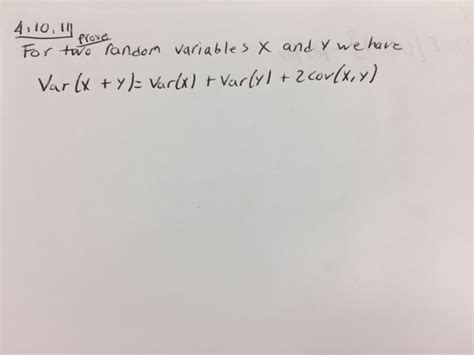 4.10.11
prove
For two random variables X and Y we have
Var(x + y) = Var(x) + Var(y) + 2cov(x,y)